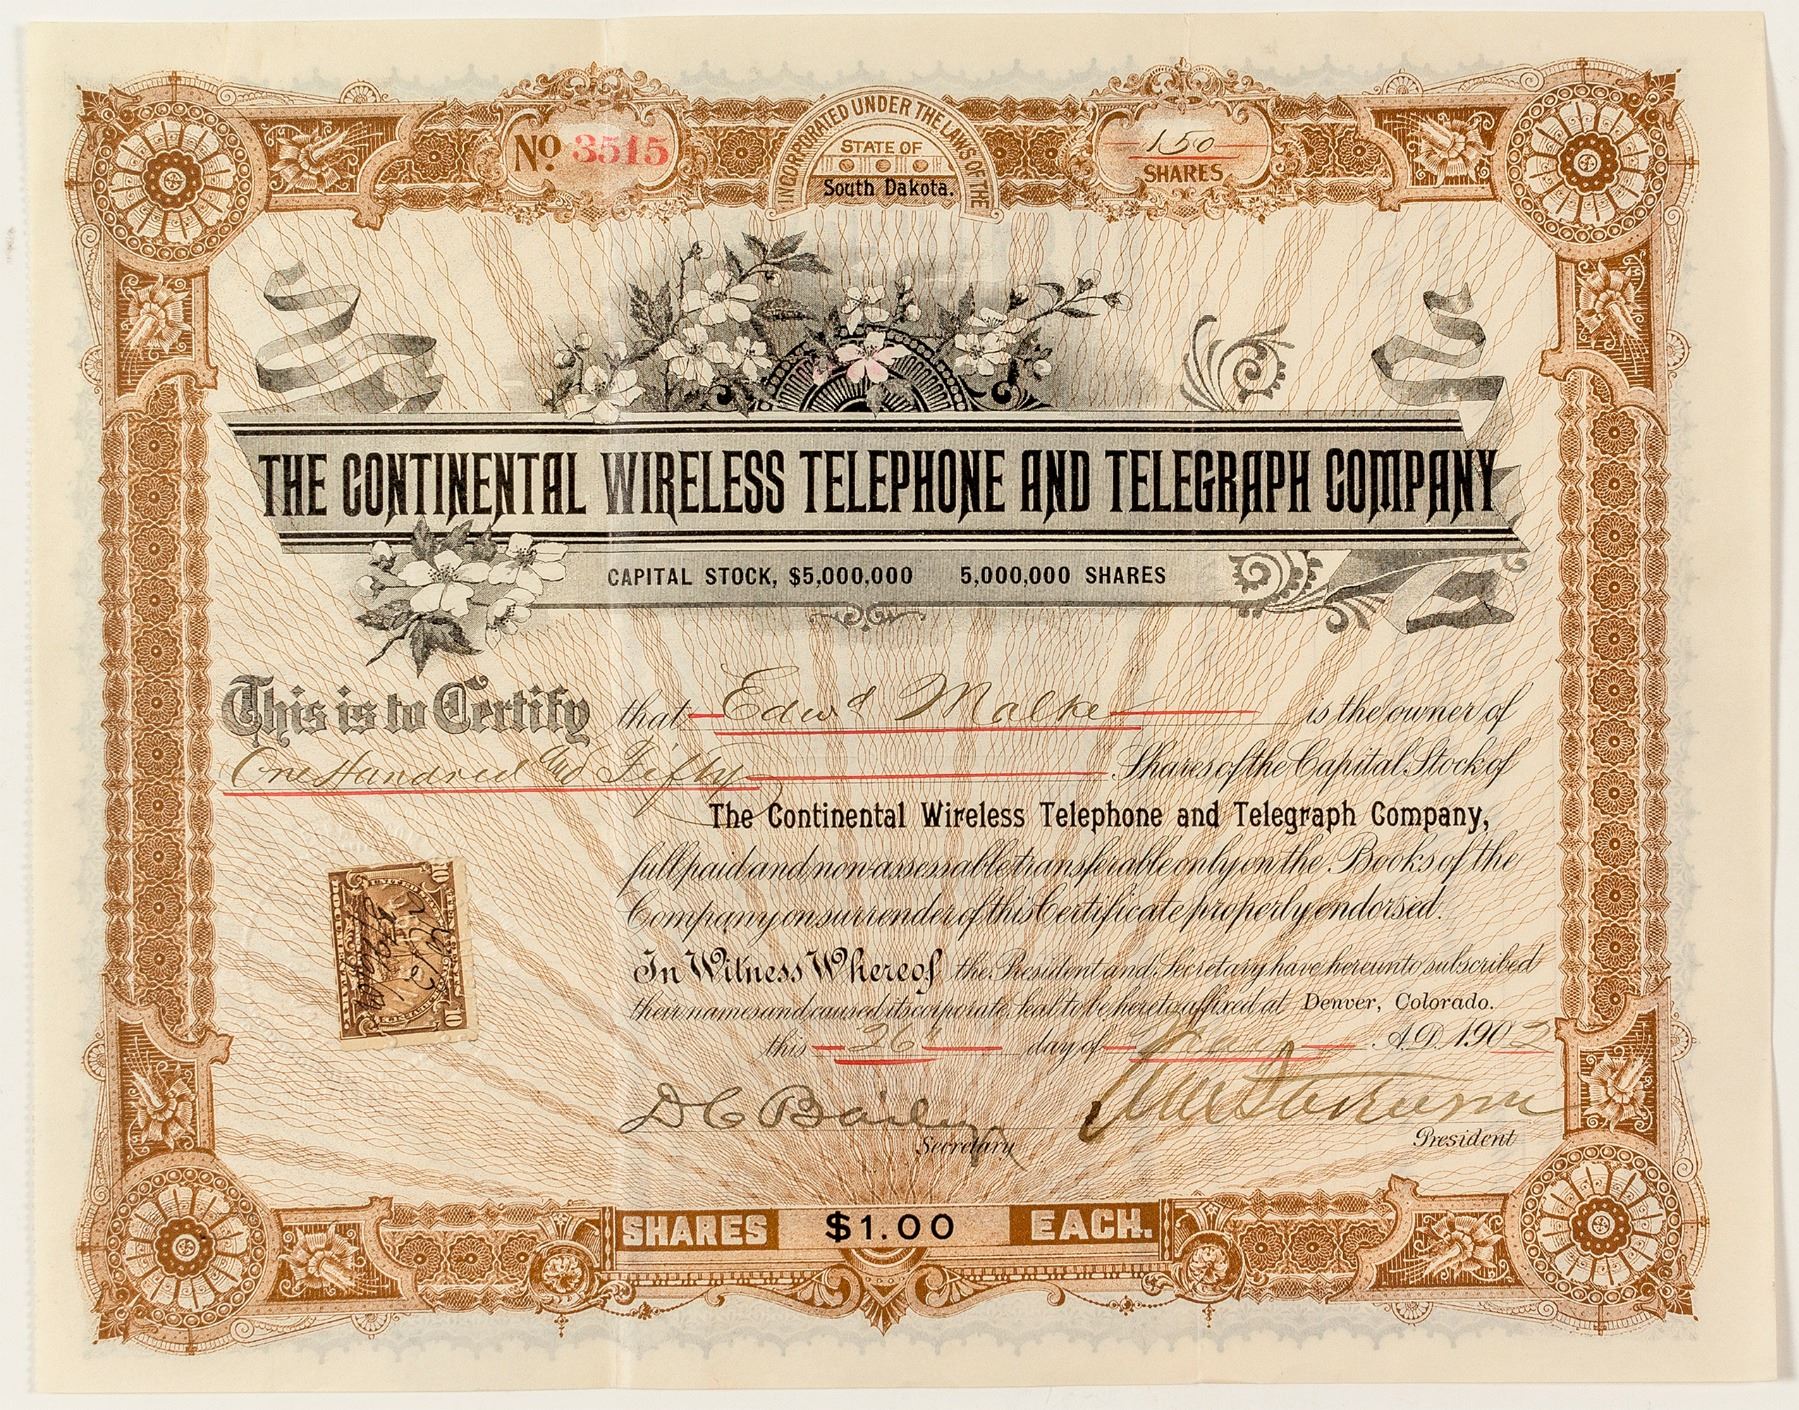 No. 3515
INCORPORATED UNDER THE LAWS OF THE
STATE OF
South Dakota.
150
SHARES
THE CONTINENTAL WIRELESS TELEPHONE AND TELEGRAPH COMPANY
CAPITAL STOCK, $5,000,000 5,000,000 SHARES
This is to Certify that Edwd Malke is the owner of
One Hundred and Fifty Shares of the Capital Stock of
The Continental Wireless Telephone and Telegraph Company,
full paid and non assessable transferable only on the Books of the
Company on surrender of this Certificate properly endorsed.
In Witness Whereof the President and Secretary have hereunto subscribed
their names and caused its corporate Seal to be hereto affixed at Denver, Colorado.
this 26 day of A.D. 1902
D C Bailey
Secretary
President
SHARES $1.00 EACH.